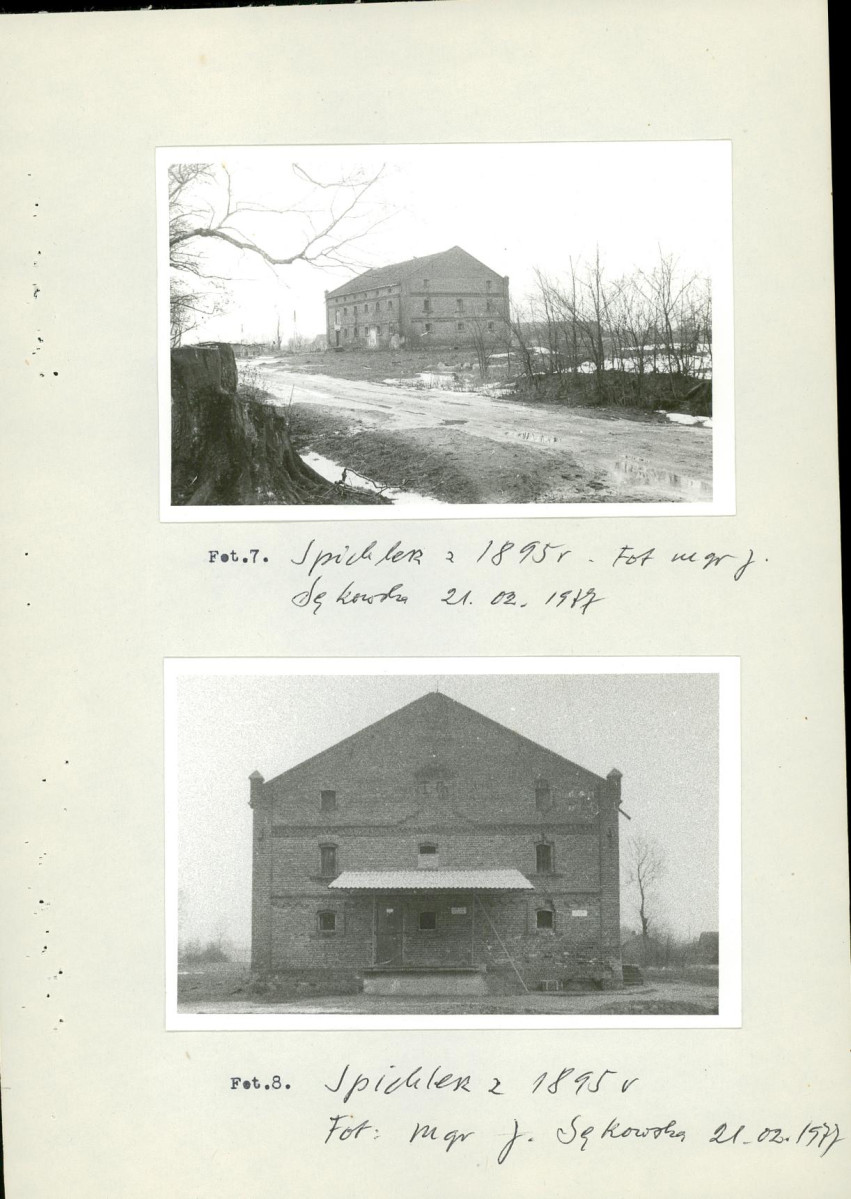 Fot.7. Spichler z 1895 r. Fot mgr J.
Sękowska 21.02.1977
Fot.8. Spichler z 1895 r
Fot: mgr J. Sękowska 21-02.1977